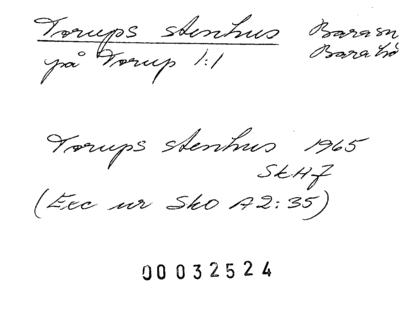 Torups stenhus Barasn
på Torup 1:1 Barahd
Torups stenhus 1965
SkHf
(Exc ur SkO A2:35)
00032524